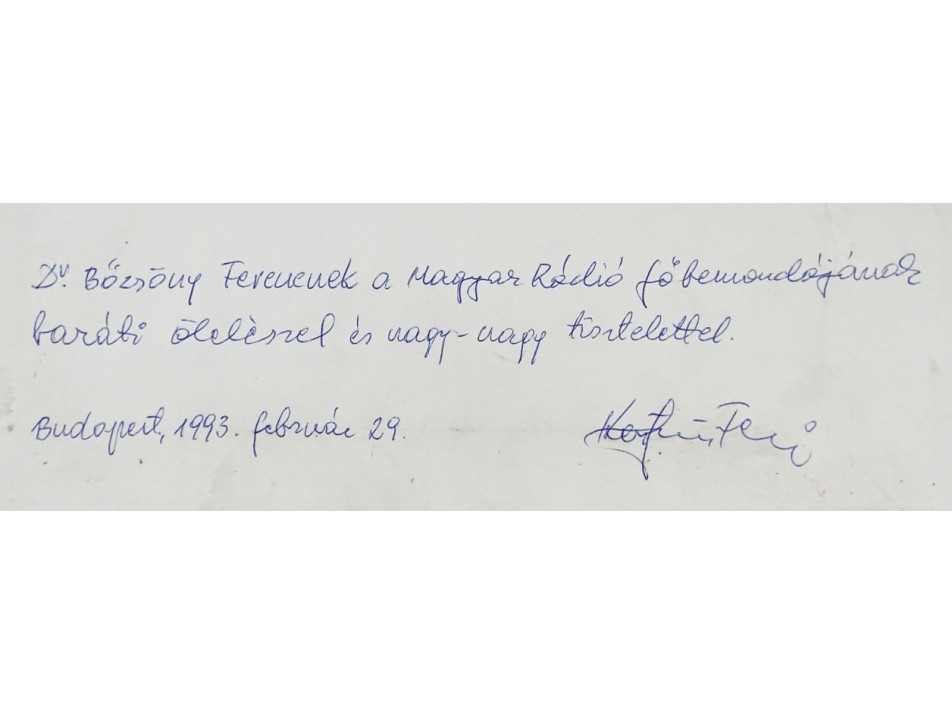 Dr. Bőzsöny Ferencnek a Magyar Rádió főbemondójának
baráti öleléssel és nagy-nagy tisztelettel.
Budapest, 1993. február 29.
Feri